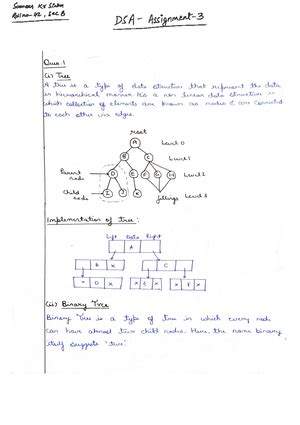 DSA - Assignment-3
Ques.1
(i) Tree
A tree is a type of data structure that represent the data
in hierarchical manner. It's a non linear data structure in
which collection of elements are known as nodes & are connected
to each other via edges.
root
A Level 0
B C Level 1
Parent node
D E F G H Level 2
Child node
I J K siblings Level 3
Implementation of tree:
Left Data Right
A
B X C
X D X X E X X F X
(ii) Binary Tree
Binary Tree is a type of tree in which every node
can have atmost two child nodes. Here, the name binary
itself suggests 'two'.